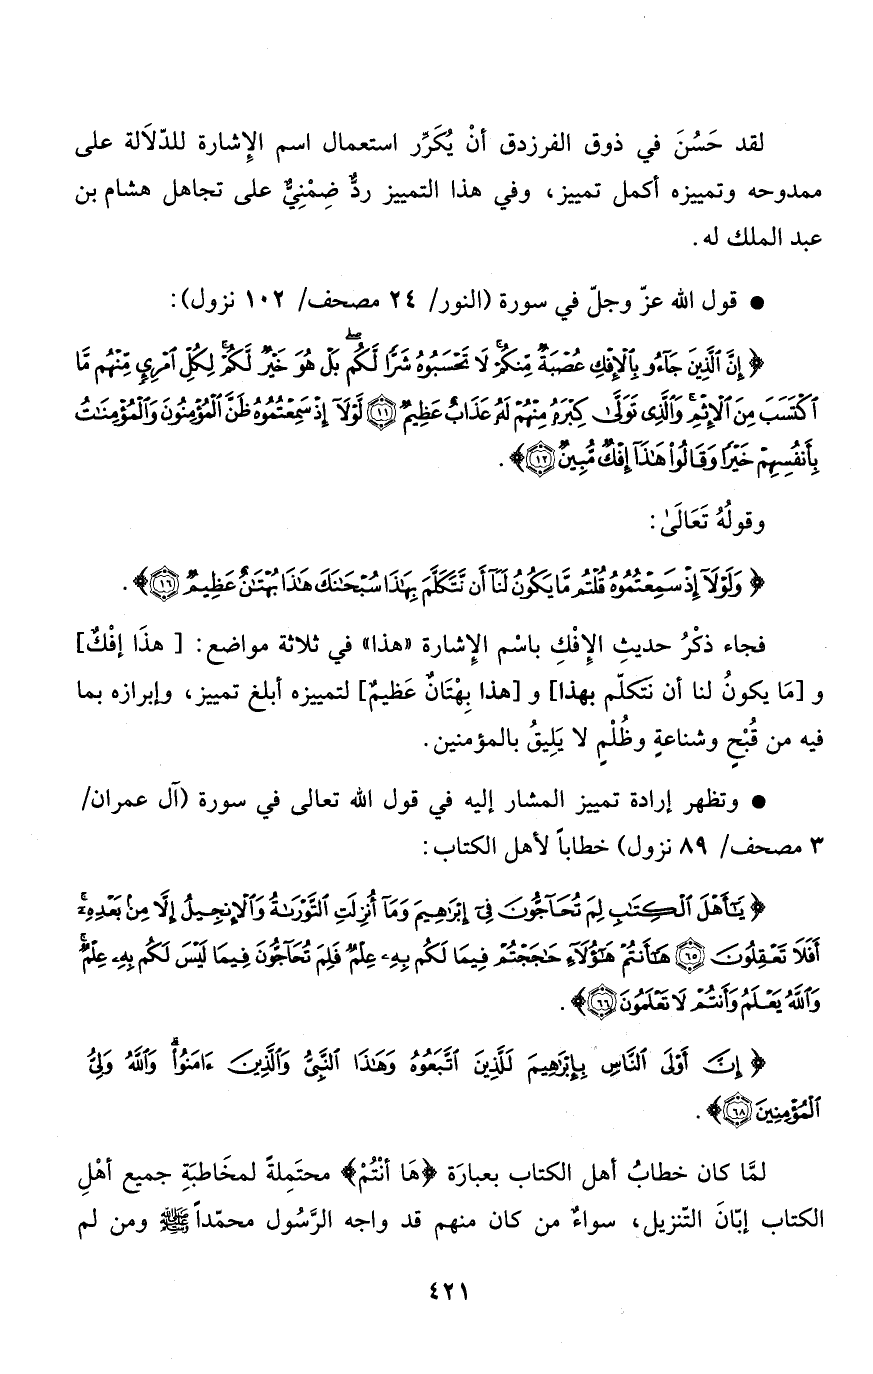 لقد حَسُنَ في ذوق الفرزدق أنْ يُكَرِّر استعمال اسم الإِشارة للدّلَالة على
ممدوحه وتمييزه أكمل تمييز، وفي هذا التمييز ردٌّ ضِمْنِيٌّ على تجاهل هشام بن
عبد الملك له.
● قول الله عزّ وجلّ في سورة (النور/ ٢٤ مصحف/ ١٠٢ نزول):
﴿ إِنَّ ٱلَّذِينَ جَآءُو بِٱلْإِفْكِ عُصْبَةٌ مِّنكُمْ ۚ لَا تَحْسَبُوهُ شَرًّا لَّكُم ۖ بَلْ هُوَ خَيْرٌ لَّكُمْ ۚ لِكُلِّ ٱمْرِيٍٕ مِّنْهُم مَّا
ٱكْتَسَبَ مِنَ ٱلْإِثْمِ ۚ وَٱلَّذِى تَوَلَّىٰ كِبْرَهُۥ مِنْهُمْ لَهُۥ عَذَابٌ عَظِيمٌ ﴿١١﴾ لَّوْلَآ إِذْ سَمِعْتُمُوهُ ظَنَّ ٱلْمُؤْمِنُونَ وَٱلْمُؤْمِنَٰتُ
بِأَنفُسِهِمْ خَيْرًا وَقَالُوا۟ هَٰذَآ إِفْكٌ مُّبِينٌ ﴿١٢﴾ ﴾.
وقولُهُ تَعَالَىٰ:
﴿ وَلَوْلَآ إِذْ سَمِعْتُمُوهُ قُلْتُم مَّا يَكُونُ لَنَآ أَن نَّتَكَلَّمَ بِهَٰذَا سُبْحَٰنَكَ هَٰذَا بُهْتَٰنٌ عَظِيمٌ ﴿١٦﴾ ﴾.
فجاء ذكْرُ حديثِ الإِفْكِ باسْم الإِشارة «هذا» في ثلاثة مواضع: [ هذَا إفْكٌ]
و [مَا يكونُ لنا أن نَتكلّم بهذا] و [هذا بِهْتَانٌ عَظيمٌ] لتمييزه أبلغ تمييز، وإبرازه بما
فيه من قُبْحٍ وشناعةٍ وظُلْمٍ لا يَلِيقُ بالمؤمنين.
● وتظهر إرادة تمييز المشار إليه في قول الله تعالى في سورة (آل عمران/
٣ مصحف/ ٨٩ نزول) خطاباً لأهل الكتاب:
﴿ يَٰٓأَهْلَ ٱلْكِتَٰبِ لِمَ تُحَآجُّونَ فِىٓ إِبْرَٰهِيمَ وَمَآ أُنزِلَتِ ٱلتَّوْرَىٰةُ وَٱلْإِنجِيلُ إِلَّا مِنۢ بَعْدِهِۦٓ ۚ
أَفَلَا تَعْقِلُونَ ﴿٦٥﴾ هَٰٓأَنتُمْ هَٰٓؤُلَآءِ حَٰجَجْتُمْ فِيمَا لَكُم بِهِۦ عِلْمٌ فَلِمَ تُحَآجُّونَ فِيمَا لَيْسَ لَكُم بِهِۦ عِلْمٌ ۚ
وَٱللَّهُ يَعْلَمُ وَأَنتُمْ لَا تَعْلَمُونَ ﴿٦٦﴾ ﴾.
﴿ إِنَّ أَوْلَى ٱلنَّاسِ بِإِبْرَٰهِيمَ لَلَّذِينَ ٱتَّبَعُوهُ وَهَٰذَا ٱلنَّبِىُّ وَٱلَّذِينَ ءَامَنُوا۟ ۗ وَٱللَّهُ وَلِىُّ
ٱلْمُؤْمِنِينَ ﴿٦٨﴾ ﴾.
لمَّا كان خطابُ أهل الكتاب بعبارَة ﴿هَا أنْتُمْ﴾ محتَمِلةً لمخَاطبَةِ جميع أهْلِ
الكتاب إبّانَ التّنزيل، سواءٌ من كان منهم قد واجه الرَّسُول محمّداً ﷺ ومن لم
٤٢١